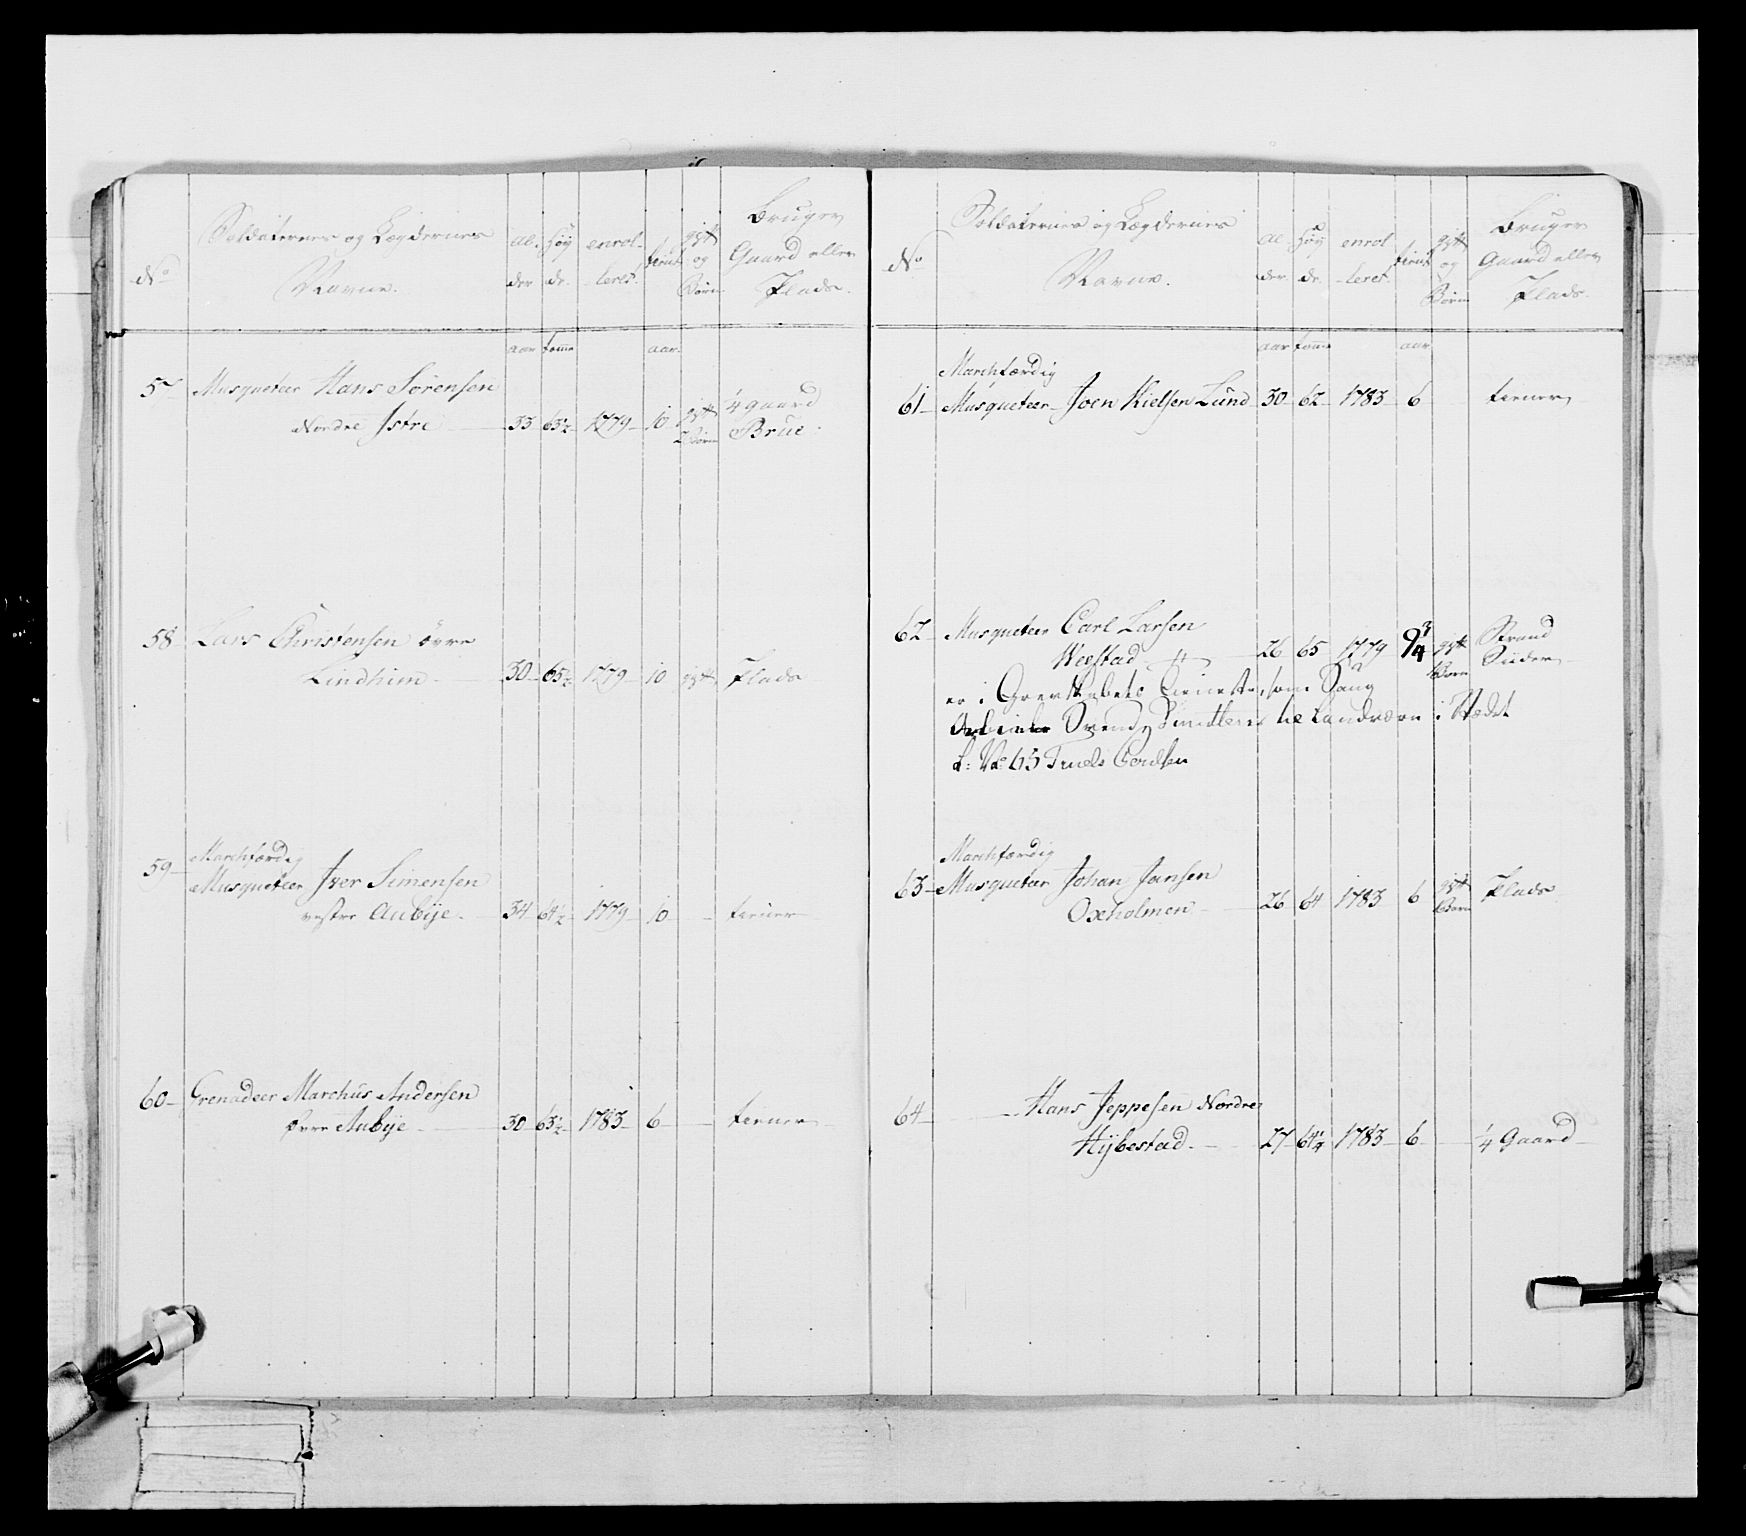 No Soldaternes og Lægdernes Navne. al- der Høy de. enrol- leret. tient gift og Børn Bruger Gaard eller Plads.
aar tomme aar
57 Musqueteer Hans Sørensen
Nordre Istre 33 63½ 1779 10 gift 2 Børn ¼ gaard Brue
58 Lars Christensen övre
Lindhim 30 65½ 1779 10 gift Plads
59 Marchfærdig
Musqueteer Iver Simensen
vestre Aubÿe 34 64½ 1779 10 tiener
60 Grenadeer Marchus Andersen
Øvre Aubÿe 30 63½ 1783 6 tiener
No Soldaternes og Lægdernes Navne. al- der Høy de. enrol leret. tient gift og Børn Bruger Gaard eller Plads.
aar tomme aar
Marchfærdig
61 Musqueteer Joen Kielsen Lund 30 62 1783 6 tiener
62 Musqueteer Carl Larsen
Weestad 26 65 1779 9¾ gift Barn Strand Sidder
er i Grevskabets Tieneste, som Saug
Svend, Landværn i Stædet
L: No 65 Truels
Marchfærdig
63 Musqueteer Johan Jansen
Oxeholmen 26 64 1783 6 gift Barn Plads
64 Hans Jeppesen Nordre
Hÿbestad 27 64¼ 1783 6 ¼ Gaard